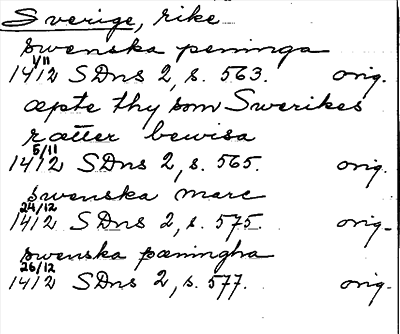 Sverige, rike
swenska peninga
1/11
1412 SDns 2, s. 563. orig.
æpte thy som Swerikes
rætter bewisa
5/11
1412 SDns 2, s. 565. orig.
swenska marc
24/12
1412 SDns 2, s. 575 orig.
swenska pæningha
26/12
1412 SDns 2, s. 577. orig.